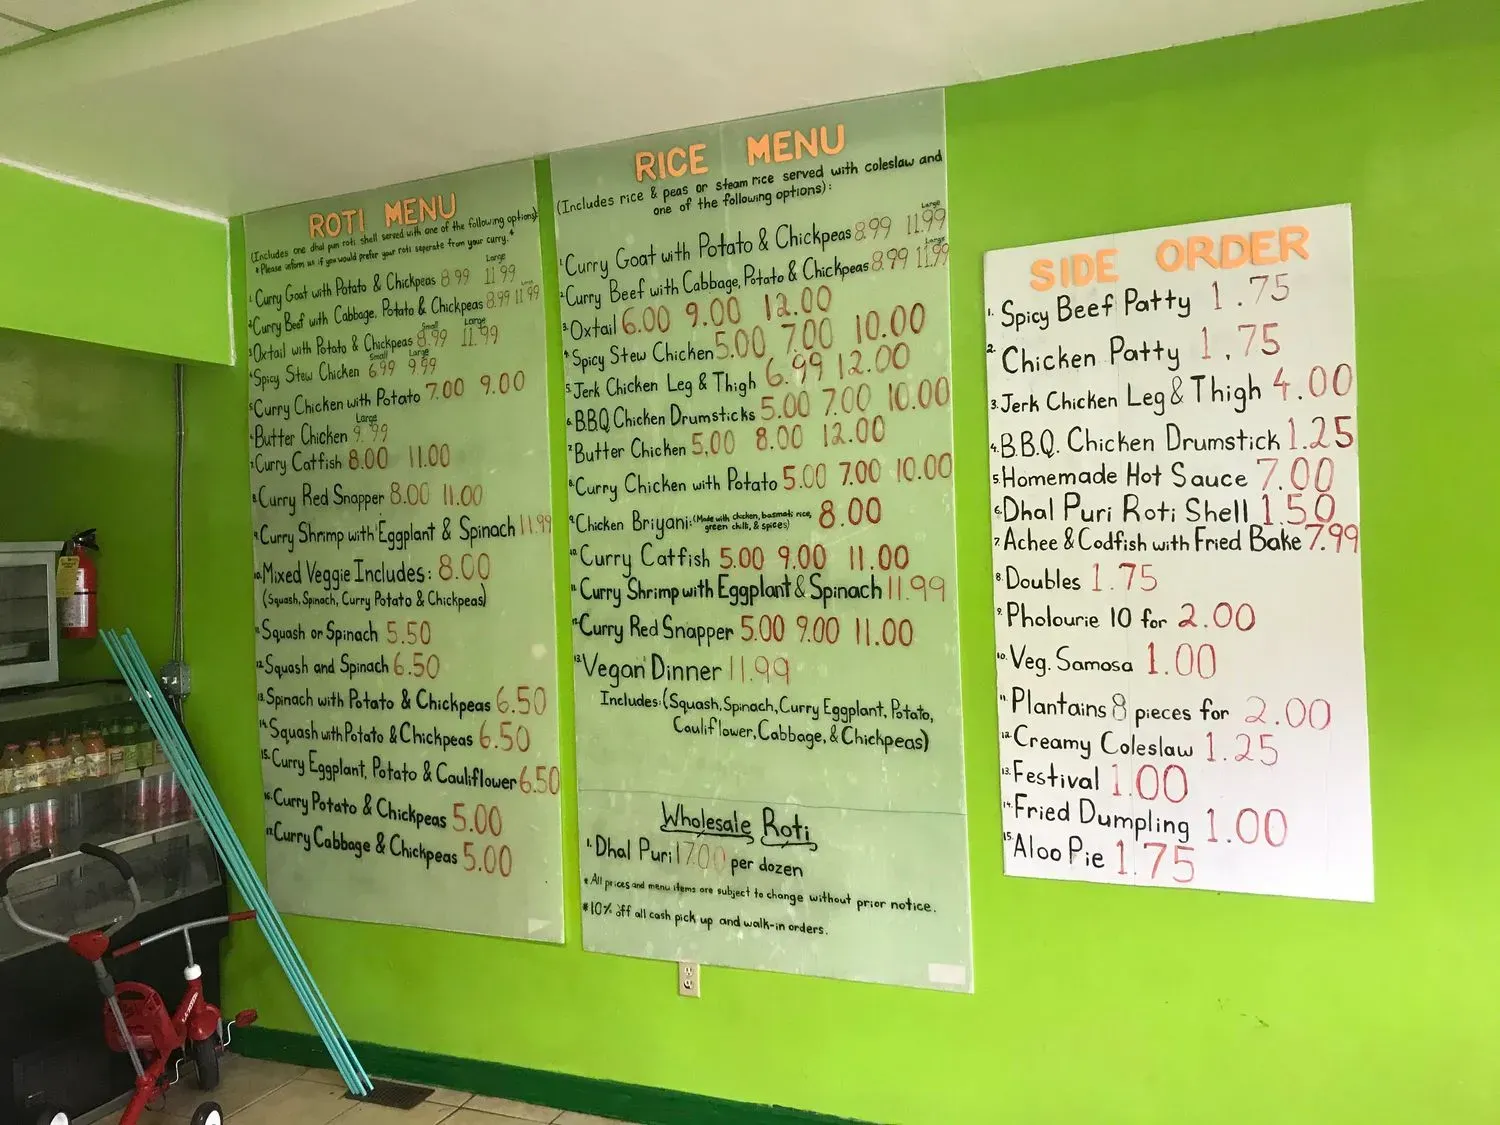 ROTI MENU
(Includes one dhal puri roti shell served with one of the following options)
*Please inform us if you would prefer your roti seperate from your curry.*
Large
1. Curry Goat with Potato & Chickpeas 8.99 11.99
2. Curry Beef with Cabbage, Potato & Chickpeas 8.99 11.99
Small Large
3. Oxtail with Potato & Chickpeas 8.99 11.99
Small Large
4. Spicy Stew Chicken 6.99 9.99
5. Curry Chicken with Potato 7.00 9.00
Large
6. Butter Chicken 9.99
7. Curry Catfish 8.00 11.00
8. Curry Red Snapper 8.00 11.00
9. Curry Shrimp with Eggplant & Spinach 11.99
10. Mixed Veggie Includes: 8.00
(Squash, Spinach, Curry Potato & Chickpeas)
11. Squash or Spinach 5.50
12. Squash and Spinach 6.50
13. Spinach with Potato & Chickpeas 6.50
14. Squash with Potato & Chickpeas 6.50
15. Curry Eggplant, Potato & Cauliflower 6.50
16. Curry Potato & Chickpeas 5.00
17. Curry Cabbage & Chickpeas 5.00
RICE MENU
(Includes rice & peas or steam rice served with coleslaw and
one of the following options):
Large
1. Curry Goat with Potato & Chickpeas 8.99 11.99
Large
2. Curry Beef with Cabbage, Potato & Chickpeas 8.99 11.99
3. Oxtail 6.00 9.00 12.00
4. Spicy Stew Chicken 5.00 7.00 10.00
5. Jerk Chicken Leg & Thigh 6.99 12.00
6. B.B.Q. Chicken Drumsticks 5.00 7.00 10.00
7. Butter Chicken 5.00 8.00 12.00
8. Curry Chicken with Potato 5.00 7.00 10.00
9. Chicken Briyani: (Made with chicken, basmati rice, green chilli, & spices) 8.00
10. Curry Catfish 5.00 9.00 11.00
11. Curry Shrimp with Eggplant & Spinach 11.99
12. Curry Red Snapper 5.00 9.00 11.00
13. Vegan Dinner 11.99
Includes: (Squash, Spinach, Curry Eggplant, Potato,
Cauliflower, Cabbage, & Chickpeas)
Wholesale Roti
1. Dhal Puri 17.00 per dozen
*All prices and menu items are subject to change without prior notice.
*10% off all cash pick up and walk-in orders.
SIDE ORDER
1. Spicy Beef Patty 1.75
2. Chicken Patty 1.75
3. Jerk Chicken Leg & Thigh 4.00
4. B.B.Q. Chicken Drumstick 1.25
5. Homemade Hot Sauce 7.00
6. Dhal Puri Roti Shell 1.50
7. Achee & Codfish with Fried Bake 7.99
8. Doubles 1.75
9. Pholourie 10 for 2.00
10. Veg. Samosa 1.00
11. Plantains 8 pieces for 2.00
12. Creamy Coleslaw 1.25
13. Festival 1.00
14. Fried Dumpling 1.00
15. Aloo Pie 1.75